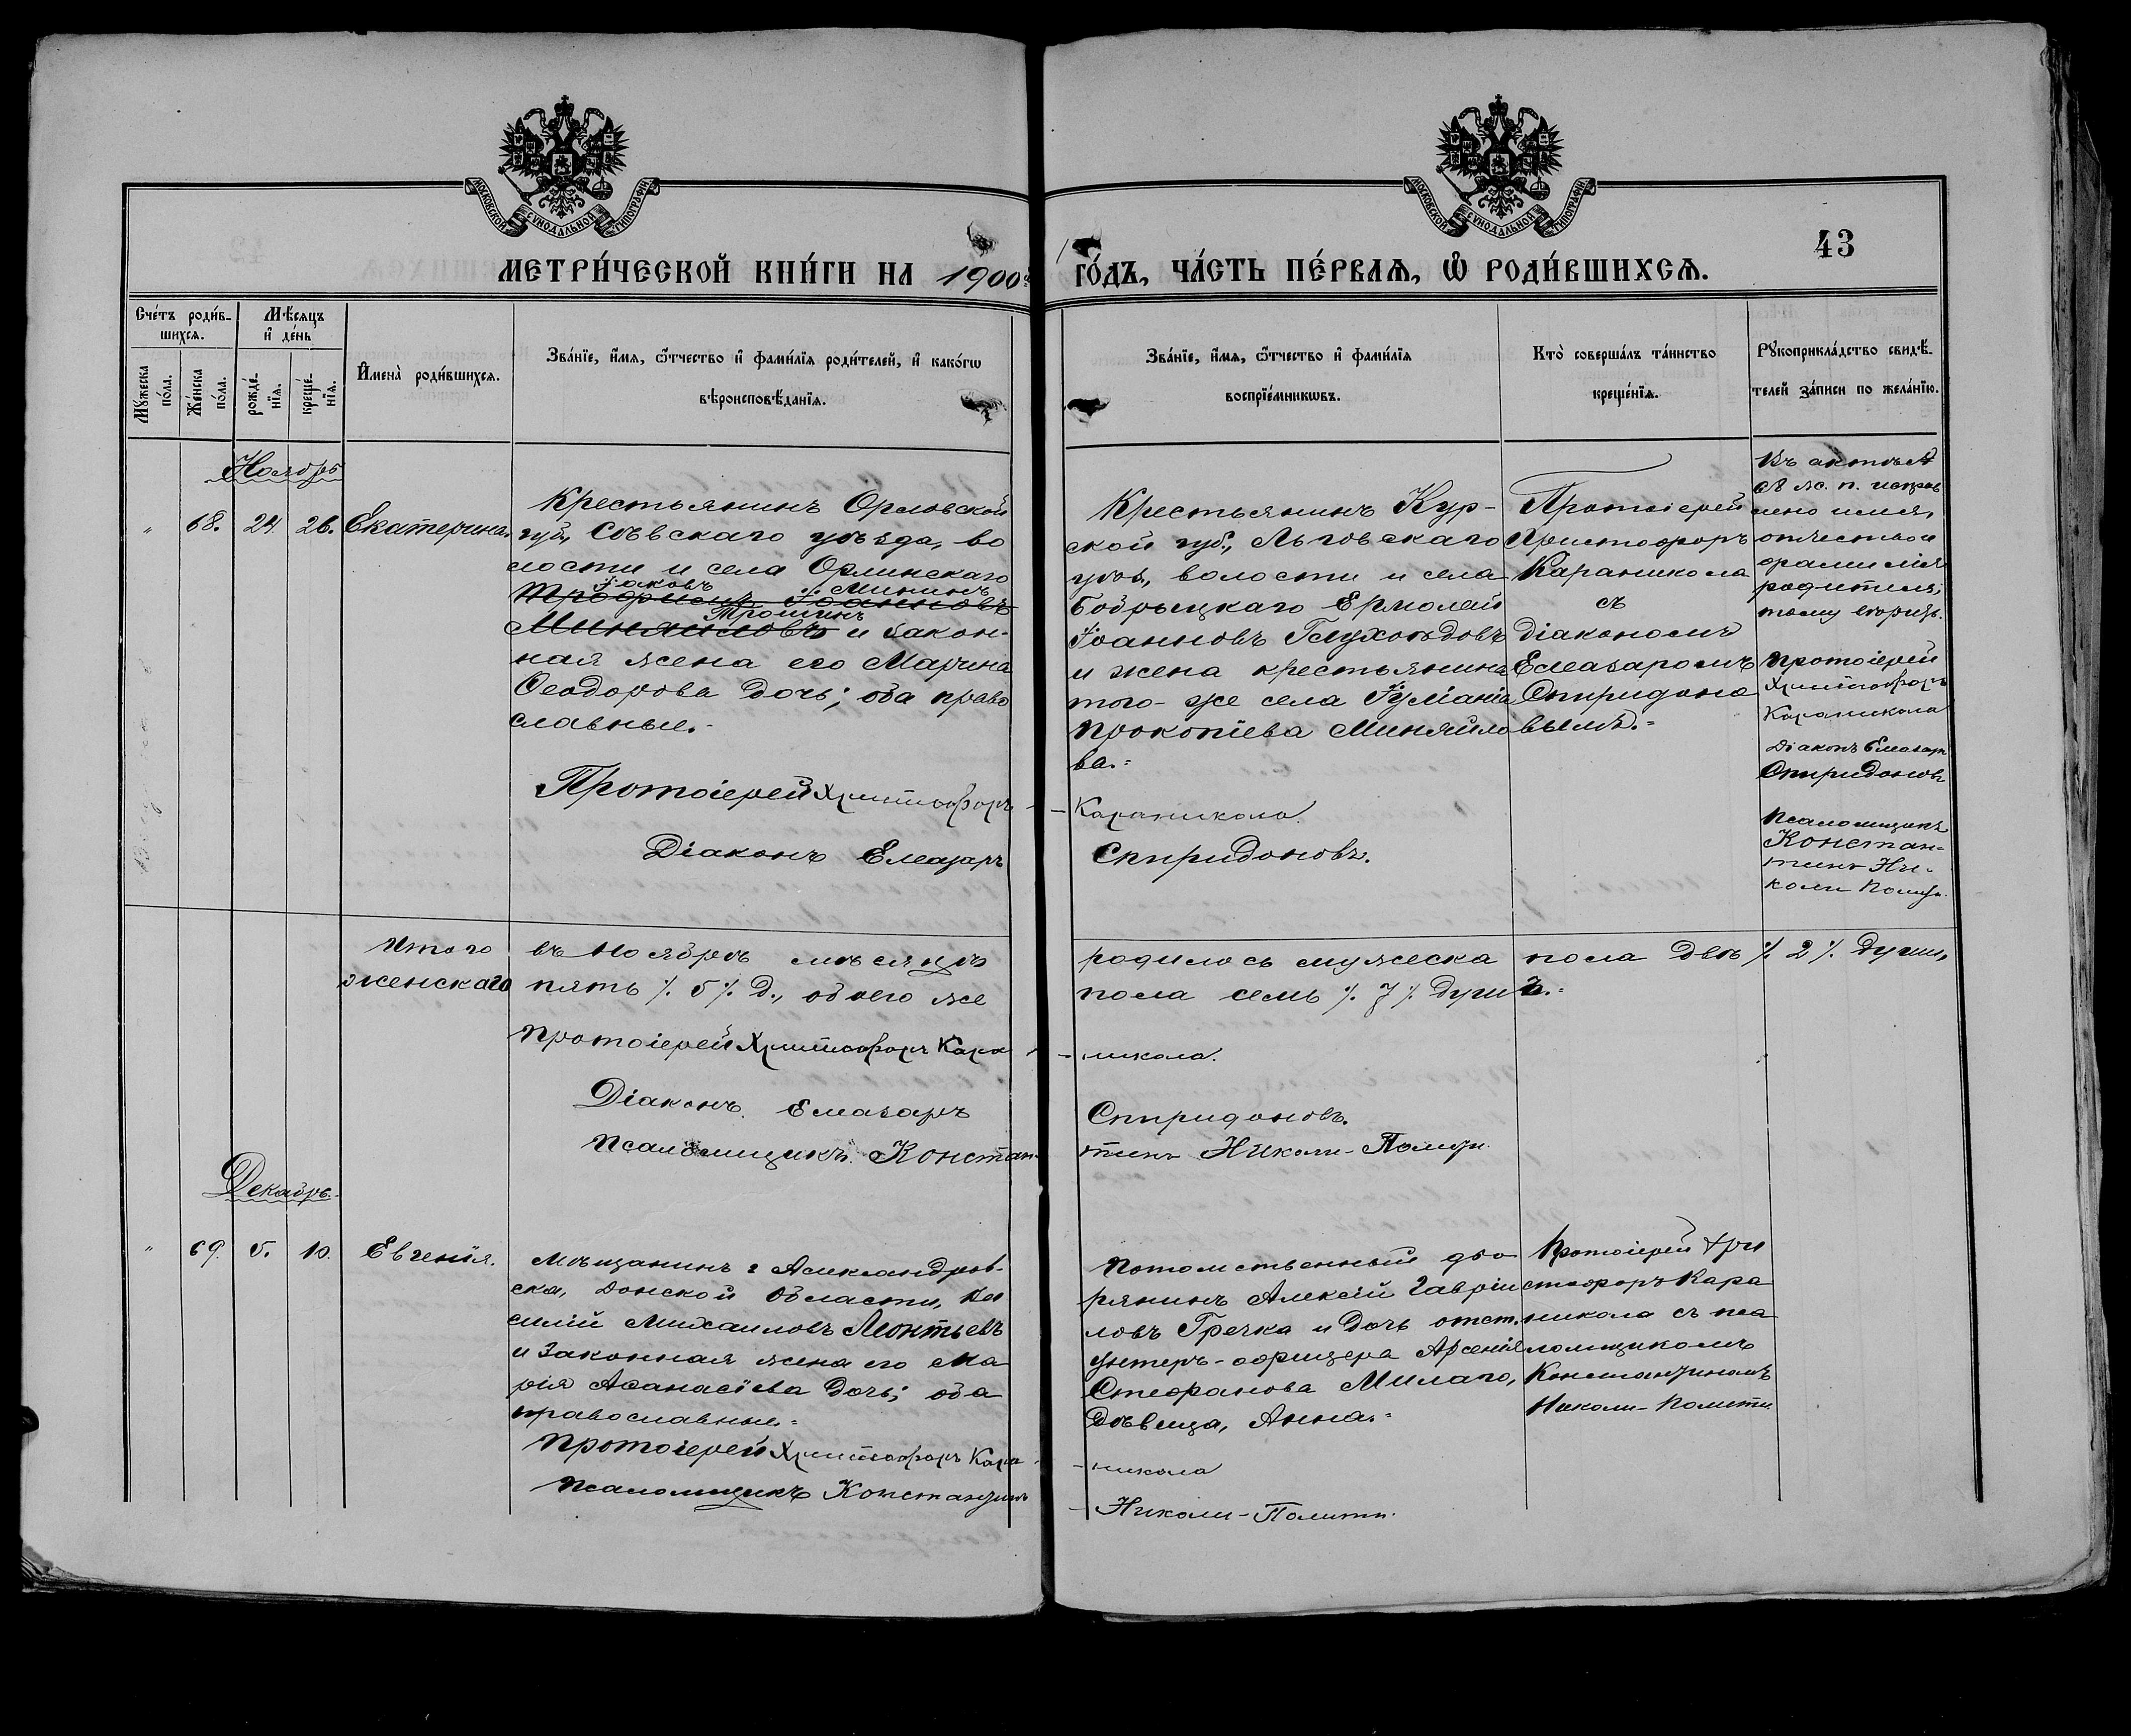 МОСКОВСКОЙ СѴНОДАЛЬНОЙ ТИПОГРАФІИ
МОСКОВСКОЙ СѴНОДАЛЬНОЙ ТИПОГРАФІИ
43
МЕТРИ́ЧЕСКОЙ КНИ́ГИ НА 1900й ГО́ДЪ, ЧА́СТЬ ПЕ́РВАѦ, Ѡ РОДИ́ВШИХСѦ.
Сче́тъ роди́в-
шихсѧ.
Мѣ́сяцъ
и҆ де́нь
Мꙋ́жеска по́ла.
Же́нска по́ла.
рожде́-нїѧ.
креще́-нїѧ.
И҆мена̀ роди́вшихсѧ.
Зва́нїе, и҆́мѧ, ѻ҆́тчество и҆ фами́лїѧ роди́телей, и҆ како́гѡ
вѣроисповѣ́данїѧ.
Зва́нїе, и҆́мѧ, ѻ҆́тчество и҆ фами́лїѧ
воспрїе́мникѡвъ.
Кто̀ соверша́лъ та́инство
креще́нїѧ.
Рꙋкоприкла́дство свидѣ́-
телей за́писи по жела́нїю.
Ноябрь
" 68. 24. 26. Екатерина.
Крестьянинъ Орловской
губ., Сѣвскаго уѣзда, во
лости и села Орлинскаго
Іаковъ Мининъ
Трофимъ Іоанновъ
Трошинъ
Миняиловъ и закон-
ная жена его Марина
Ѳеодорова дочь; оба право
славные.-
Протоіерей Христофоръ -
Діаконъ Елеазаръ
Крестьянинъ Кур-
ской губ., Льговскаго
уѣз., волости и села
Бобрыцкаго Ермолай
Іоанновъ Глуховѣдовъ
и жена крестьянина
того-же села Іуліанія
Прокопіева Миняйло
ва.=
- Караникола.
Спиридоновъ.
Протоіерей
Христофоръ
Караникола
съ
діакономъ
Елеазаромъ
Спиридоно
вымъ.=
Въ актѣ
исправ
лено имя,
отчество и
фамилія
родителя;
тому вѣрить.
Протоіерей
Христофоръ
Караникола
Діаконъ Елеазаръ
Спиридоновъ
Псаломщикъ
Констан-
тинъ Ни-
коли Полити.
Итого въ Ноябрѣ мѣсяцѣ родилось мужеска пола двѣ ./. 2 ./. души,
женскаго пять ./. 5 ./. д., обоего же пола семь ./. 7 ./. душъ.=
Протоіерей Христофоръ Кара - - никола.
Діаконъ Елеазаръ Спиридоновъ.
Псаломщикъ Констан- тинъ Николи-Полити.
Декабрь.
" 69. 5. 10. Евгенія.
Мѣщанинъ г Александров-
ска, Донской Области, Ва
силій Михаиловъ Леонтьевъ
и законная жена его Ма
рія Аѳанасіева дочь; оба
православные.=
Протоіерей Христофоръ Кара -
Псаломщикъ Константинъ
Потомственный дво
рянинъ Алексій Гавріи
ловъ Гречка и дочь отст.
унтеръ-офицера Арсенія
Стефанова Милаго,
дѣвица, Анна.=
- никола
- Николи-Полити.
Протоіерей Хри
стофоръ Кара
никола съ пса
ломщикомъ
Константиномъ
Николи-Полити